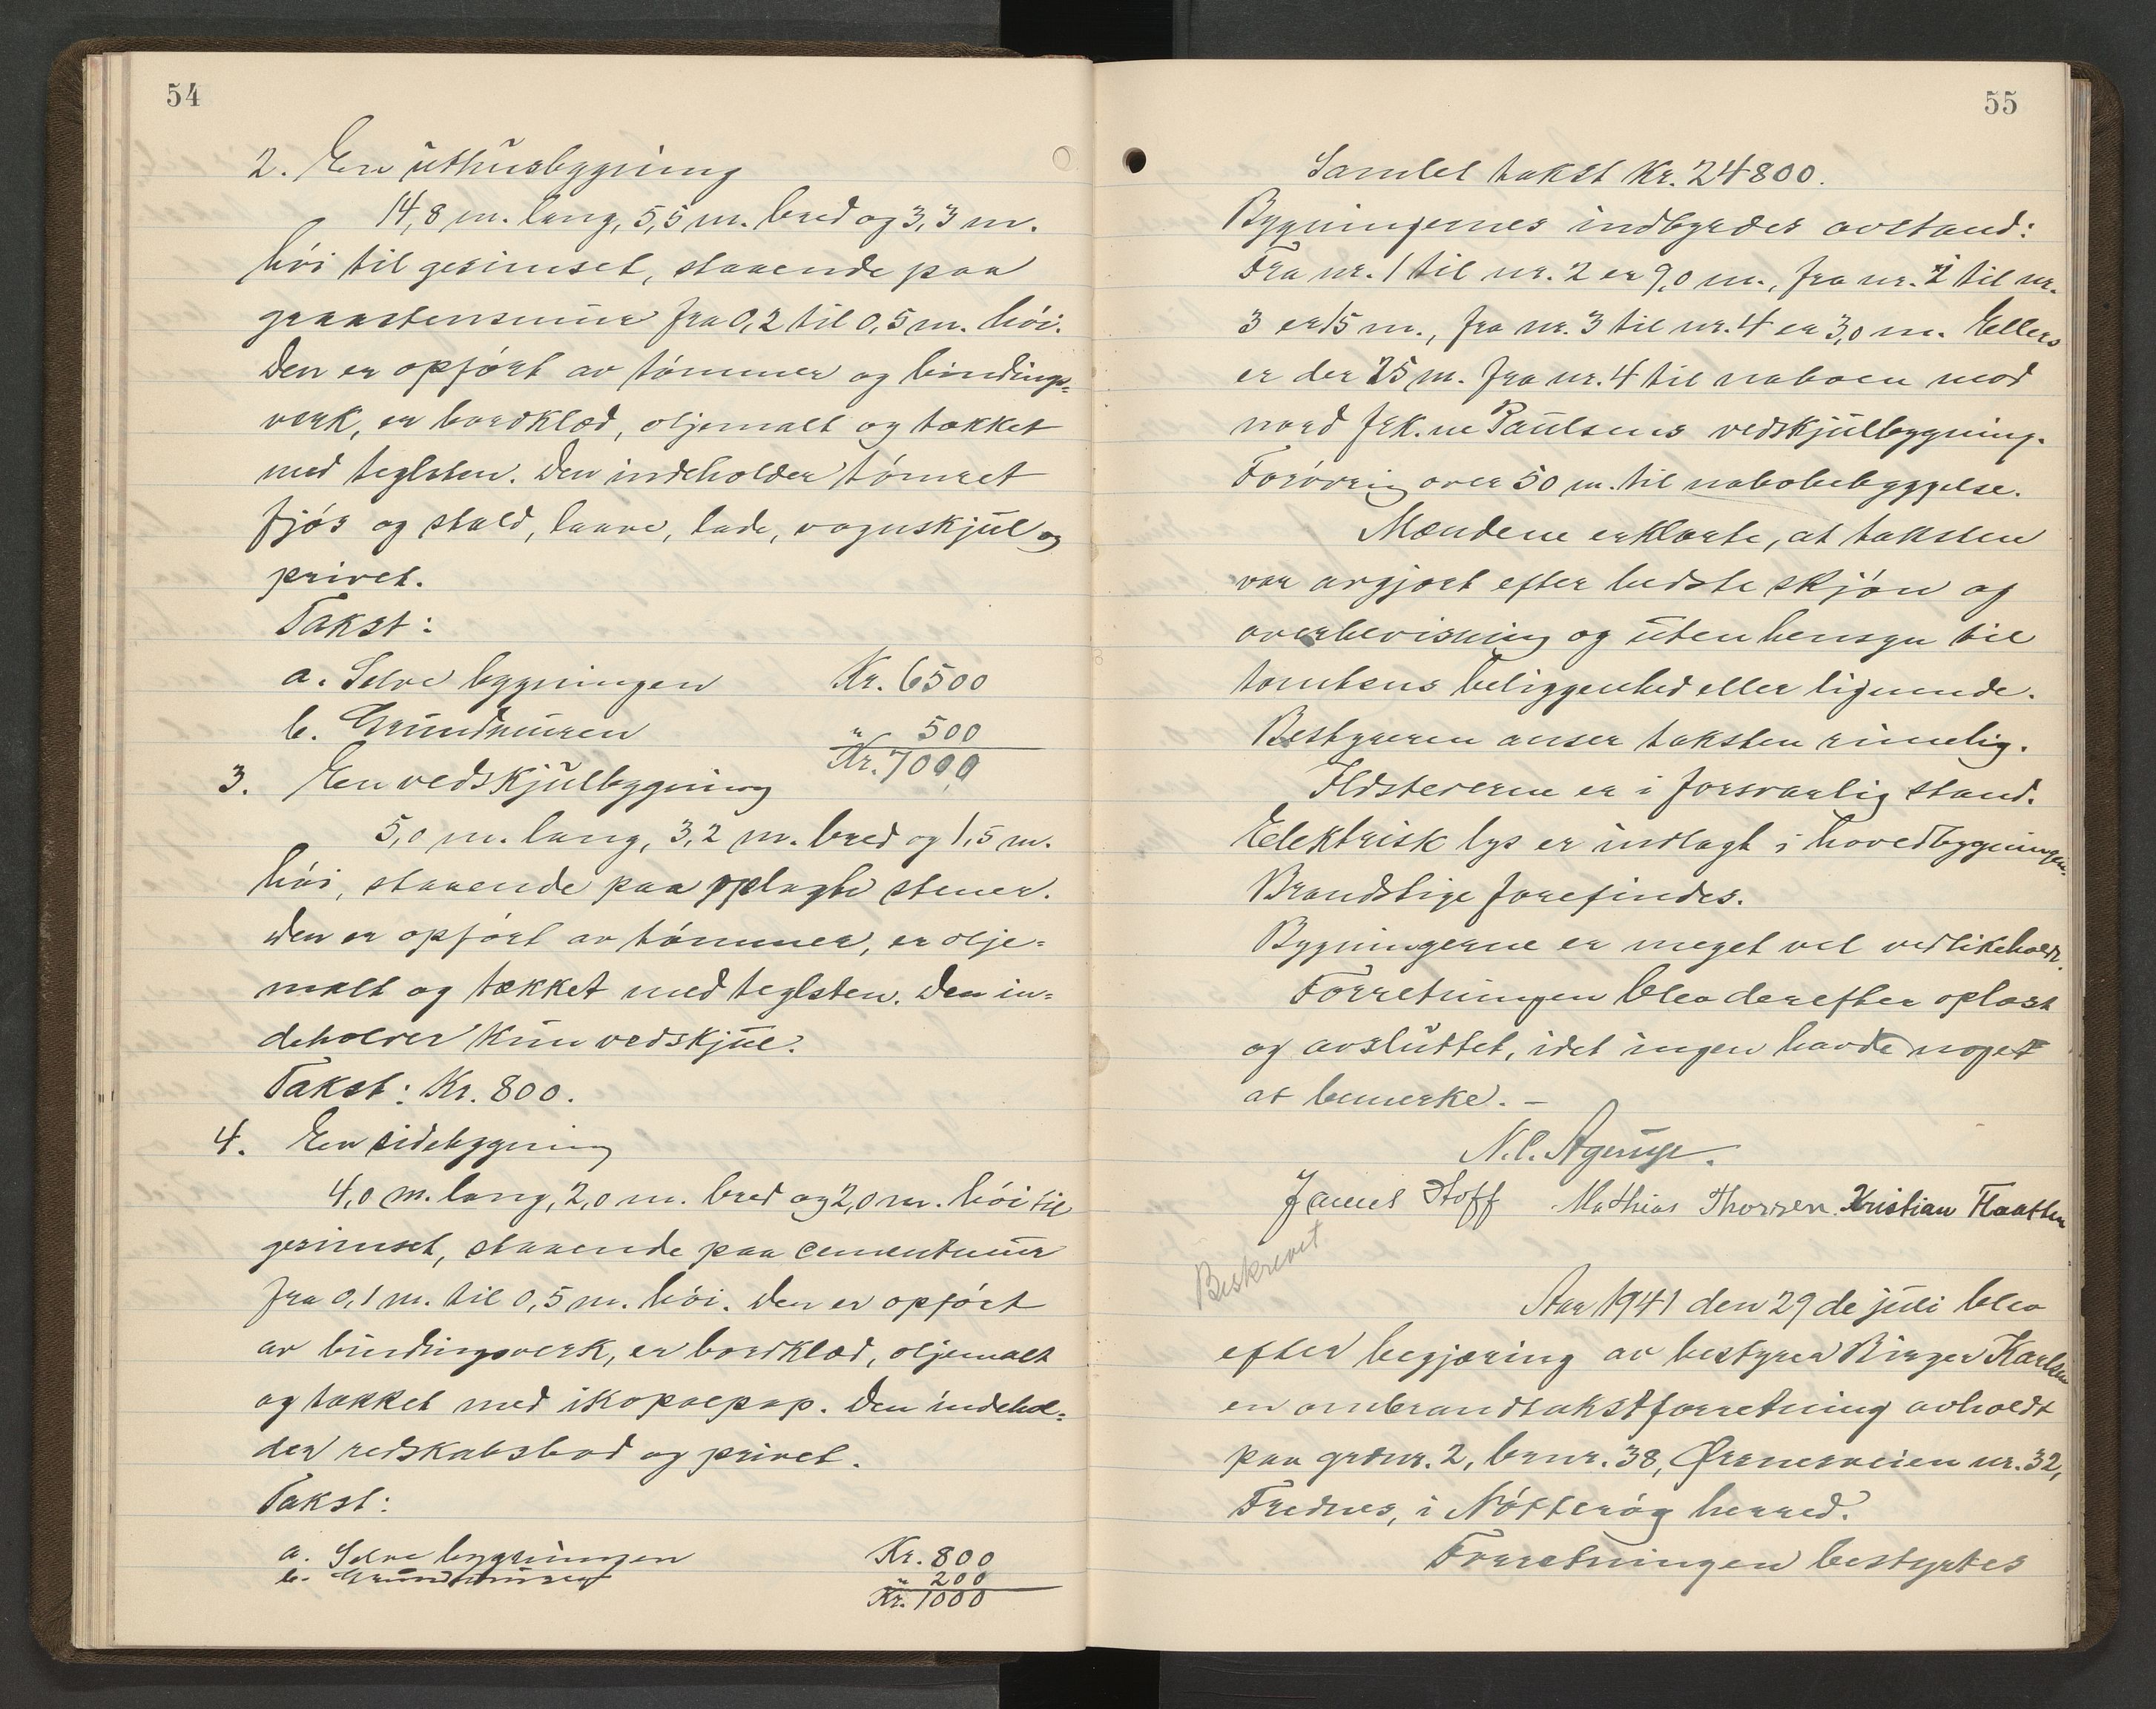 54
2. En uthusbygning
14,8 m. lang, 5,5 m. bred og 3,3 m.
høi til gesimset, staaende paa
graastensmur fra 0,2 til 0,5 m. høi.
Den er opført av tømmer og bindings-
verk, er bordklæd, oljemalt og tækket
med teglsten. Den indeholder tømret
fjøs og stald, laave, lade, vognskjul og
privet.
Takst:
a. Selve bygningen Kr. 6500
b. Grundmuren " 500
Kr. 7000
3. En vedskjulbygning
5,0 m. lang, 3,2 m. bred og 1,5 m.
høi, staaende paa oplagte stener.
Den er opført av tømmer, er olje-
malt og tækket med teglsten. Den in-
deholder kun vedskjul.
Takst: Kr. 800.
4. En sidebygning
4,0 m. lang, 2,0 m. bred og 2,0 m. høi til
gesimset, staaende paa cementmur
fra 0,1 m. til 0,5 m. høi. Den er opført
av bindingsverk, er bordklæd, oljemalt
og tækket med ikopalpap. Den indehol-
der redskabsbod og privet.
Takst:
a. Selve bygningen Kr. 800
b. Grundmuren " 200
Kr. 1000
55
Samlet takst Kr. 24800.
Bygningernes indbyrdes avstand:
Fra nr. 1 til nr. 2 er 9,0 m., fra nr. 2 til nr.
3 er 15 m., fra nr. 3 til nr. 4 er 3,0 m. Ellers
er der 25 m. fra nr. 4 til naboen mod
nord frk.ne Paulsens vedskjulbygning.
Forøvrig over 50 m. til nabobebyggelse.
Mændene erklærte, at taksten
var avgjort efter bedste skjøn og
overbevisning og uten hensyn til
tomtens beliggenhed eller lignende.
Bestyreren anser taksten rimelig.
Ildstederne er i forsvarlig stand.
Elektrisk lys er indlagt i hovedbygningen.
Brandstige forefindes.
Bygningerne er meget vel vedlikeholdt.
Forretningen blev derefter oplæst
og avsluttet, idet ingen havde noget
at bemerke. –
N. C. Agerup.
James Hoff Mathias Thorsen. Kristian Flaatten
Beskrevet
Aar 1941 den 29de juli blev
efter begjæring av bestyrer Birger Karlsen
en ombrandtakstforretning avholdt
paa grdnr. 2, brnr. 38, Ørsnesveien nr. 32,
Frednes, i Nøtterøy herred.
Forretningen bestyrtes